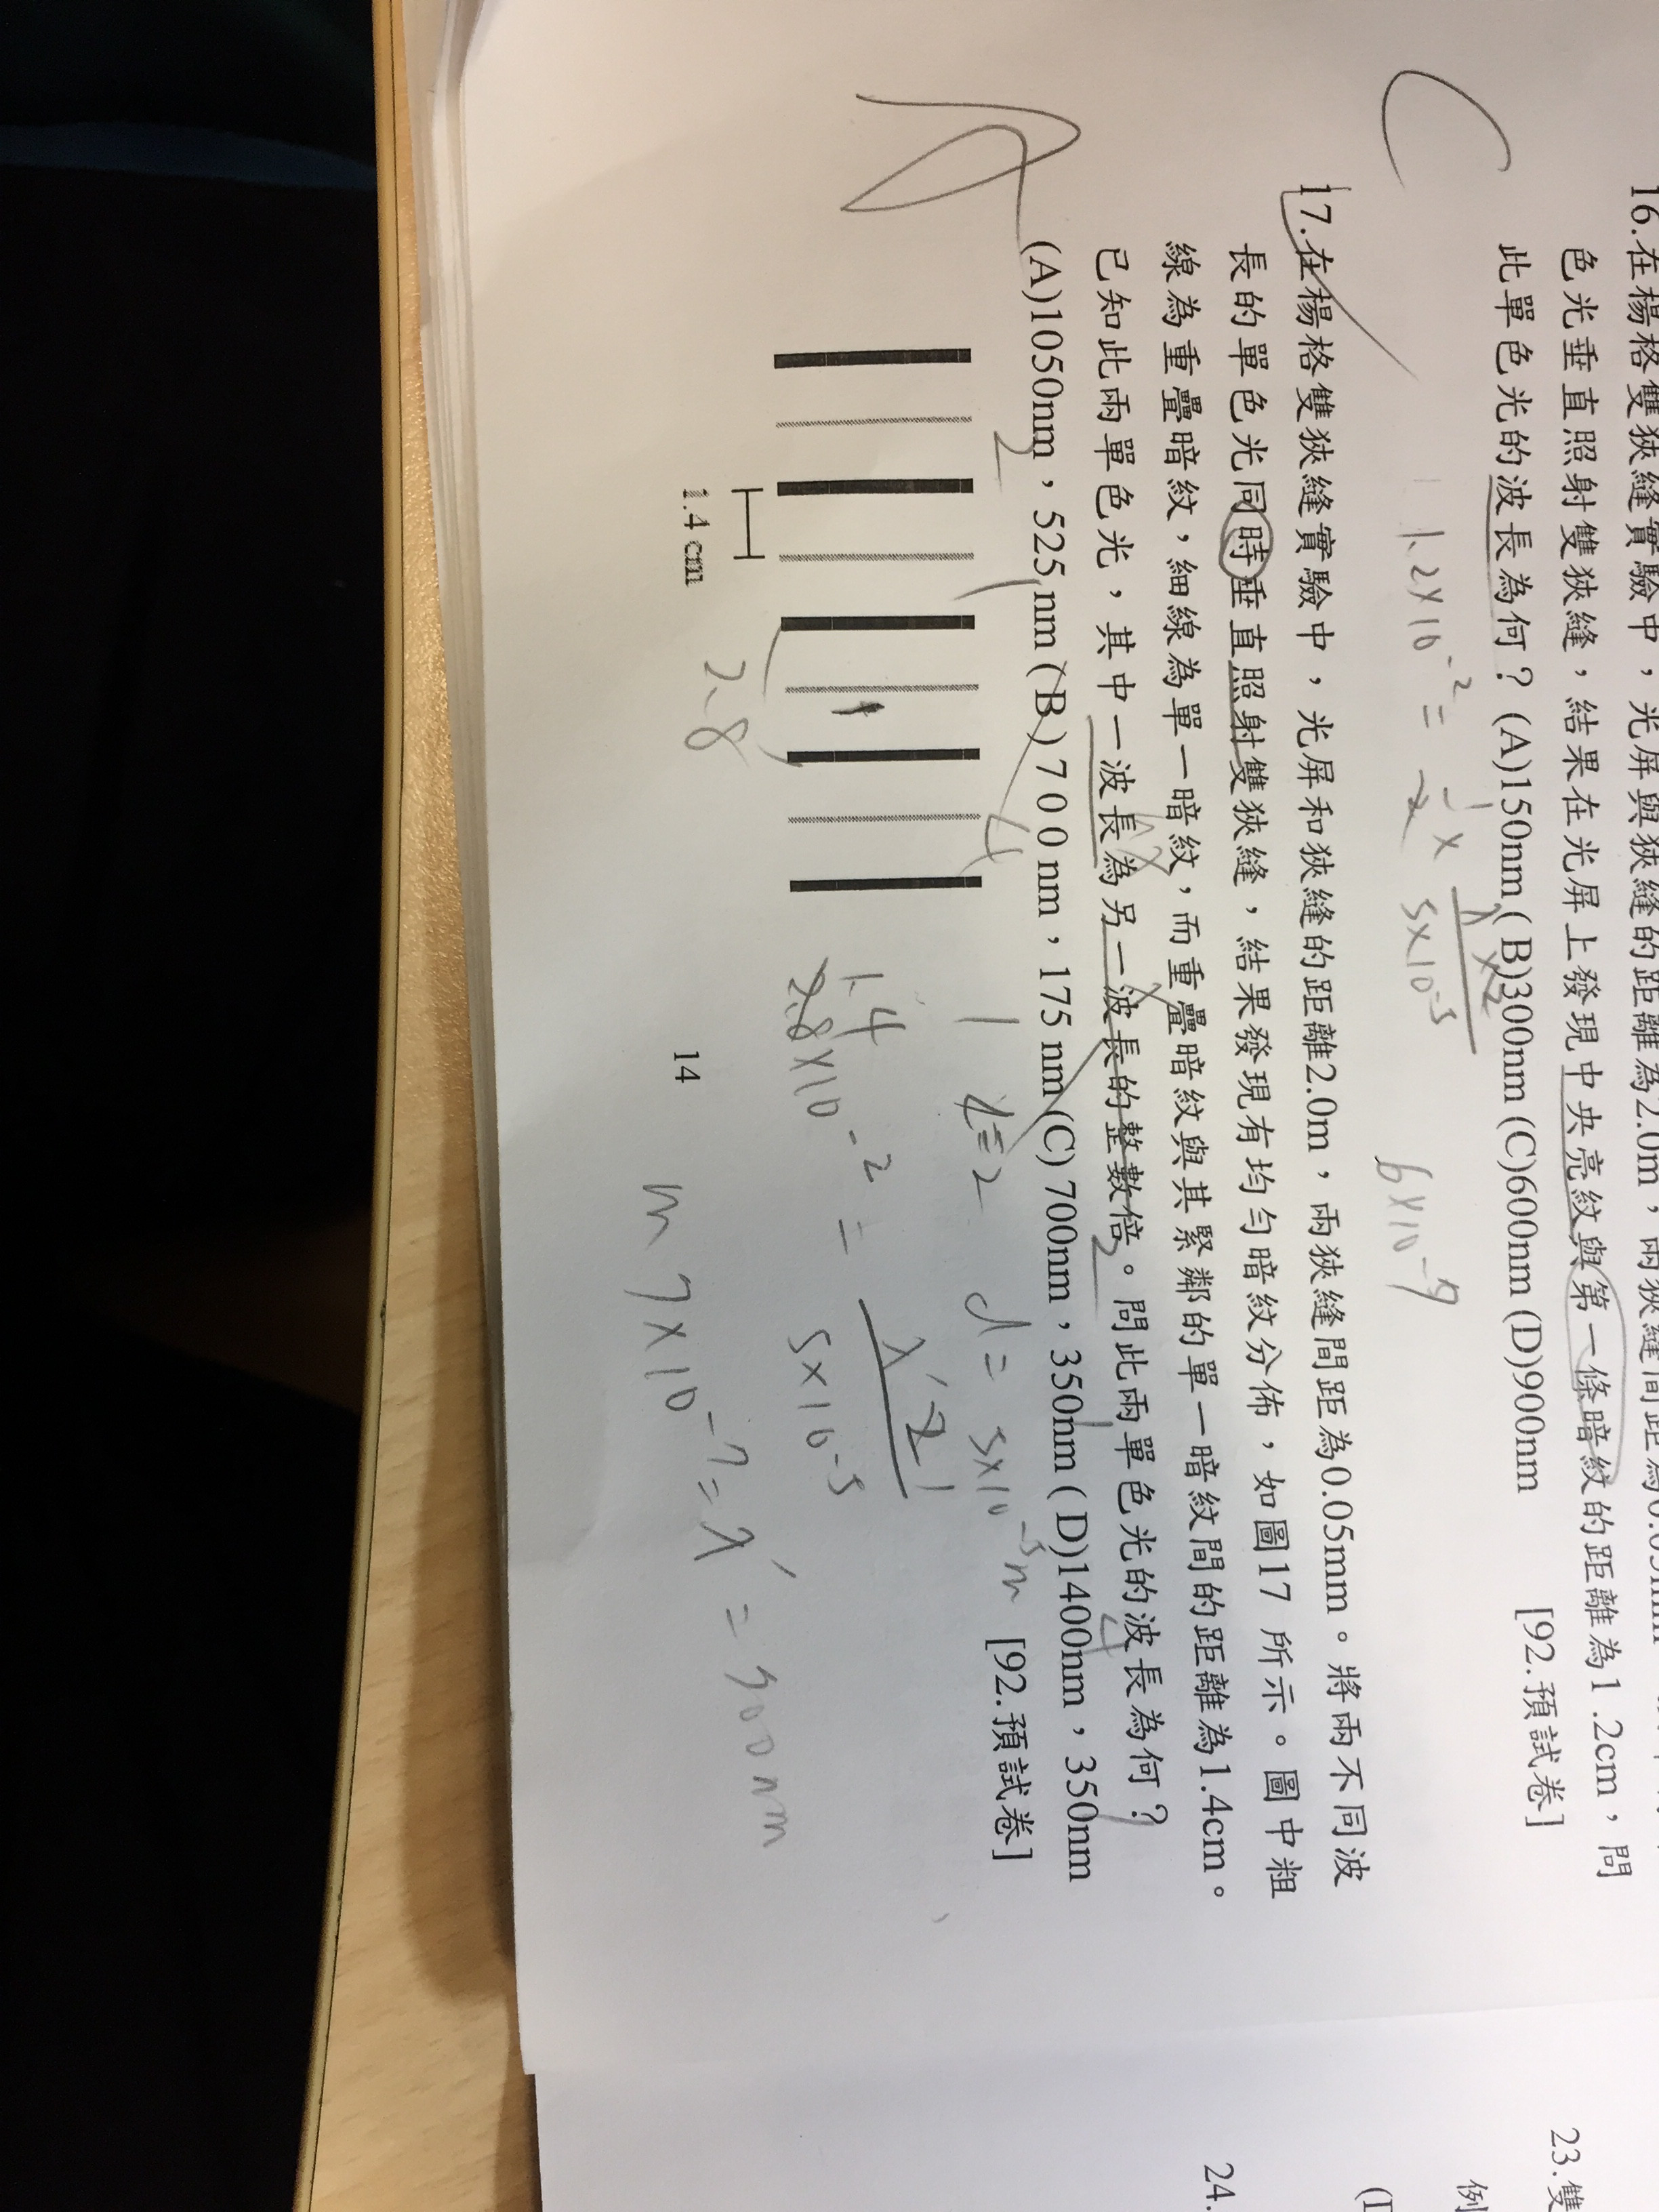 16.在楊格雙狹縫實驗中，光屏與狹縫的距離為2.0m，兩狹縫間距為0.05mm
色光垂直照射雙狹縫，結果在光屏上發現中央亮紋與第一條暗紋的距離為1.2cm，問
此單色光的波長為何？(A)150nm(B)300nm(C)600nm(D)900nm [92.預試卷]
1.2×10⁻² = 1/2 × λ×2 / 5×10⁻⁵
6×10⁻⁹
17.在楊格雙狹縫實驗中，光屏和狹縫的距離2.0m，兩狹縫間距為0.05mm。將兩不同波
長的單色光同時垂直照射雙狹縫，結果發現有均勻暗紋分佈，如圖17 所示。圖中粗
線為重疊暗紋，細線為單一暗紋，而重疊暗紋與其緊鄰的單一暗紋間的距離為1.4cm。
已知此兩單色光，其中一波長為另一波長的整數倍。問此兩單色光的波長為何？
(A)1050nm，525nm(B)700nm，175nm(C)700nm，350nm(D)1400nm，350nm
[92.預試卷]
1.4 cm
2.8
r=2 d=5×10⁻⁵m
1.4
2.8×10⁻² = λ'2 / 5×10⁻⁵
m 7×10⁻⁷=λ'
14
23.雙
例
24.